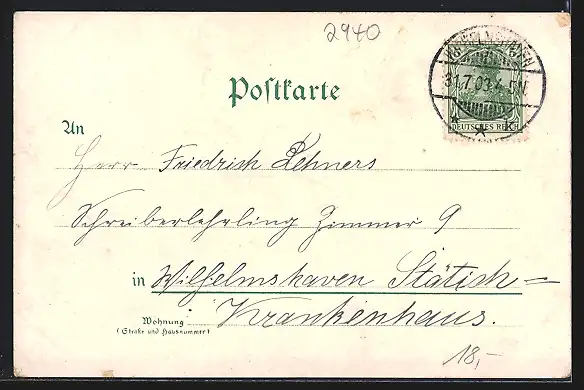 2940
WILHELMSHAVEN
31.7.03.4-5N.
* * k
DEUTSCHES REICH
Postkarte
An
Herr Friedrich Lehners
Schreiberlehrling Zimmer 9
in Wilhelmshaven Stätisch=
Krankenhaus.
Wohnung
(Straße und Hausnummer)
18,-